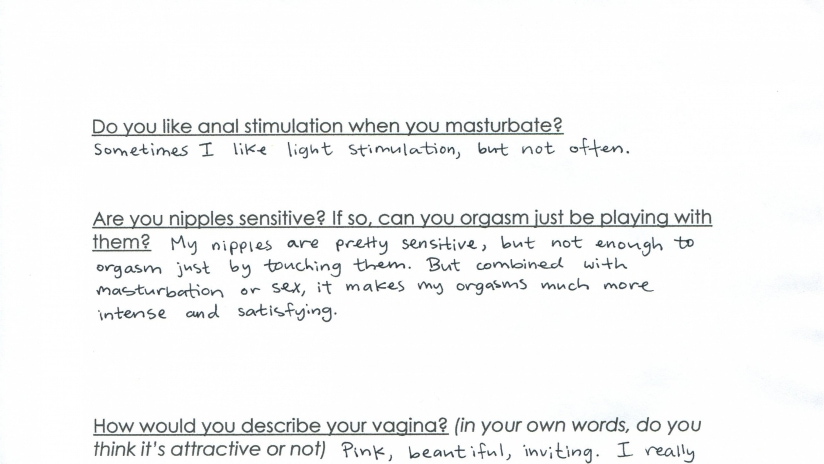 Do you like anal stimulation when you masturbate?
Sometimes I like light stimulation, but not often.
Are you nipples sensitive? If so, can you orgasm just be playing with
them? My nipples are pretty sensitive, but not enough to
orgasm just by touching them. But combined with
masturbation or sex, it makes my orgasms much more
intense and satisfying.
How would you describe your vagina? (in your own words, do you
think it's attractive or not) Pink, beautiful, inviting. I really